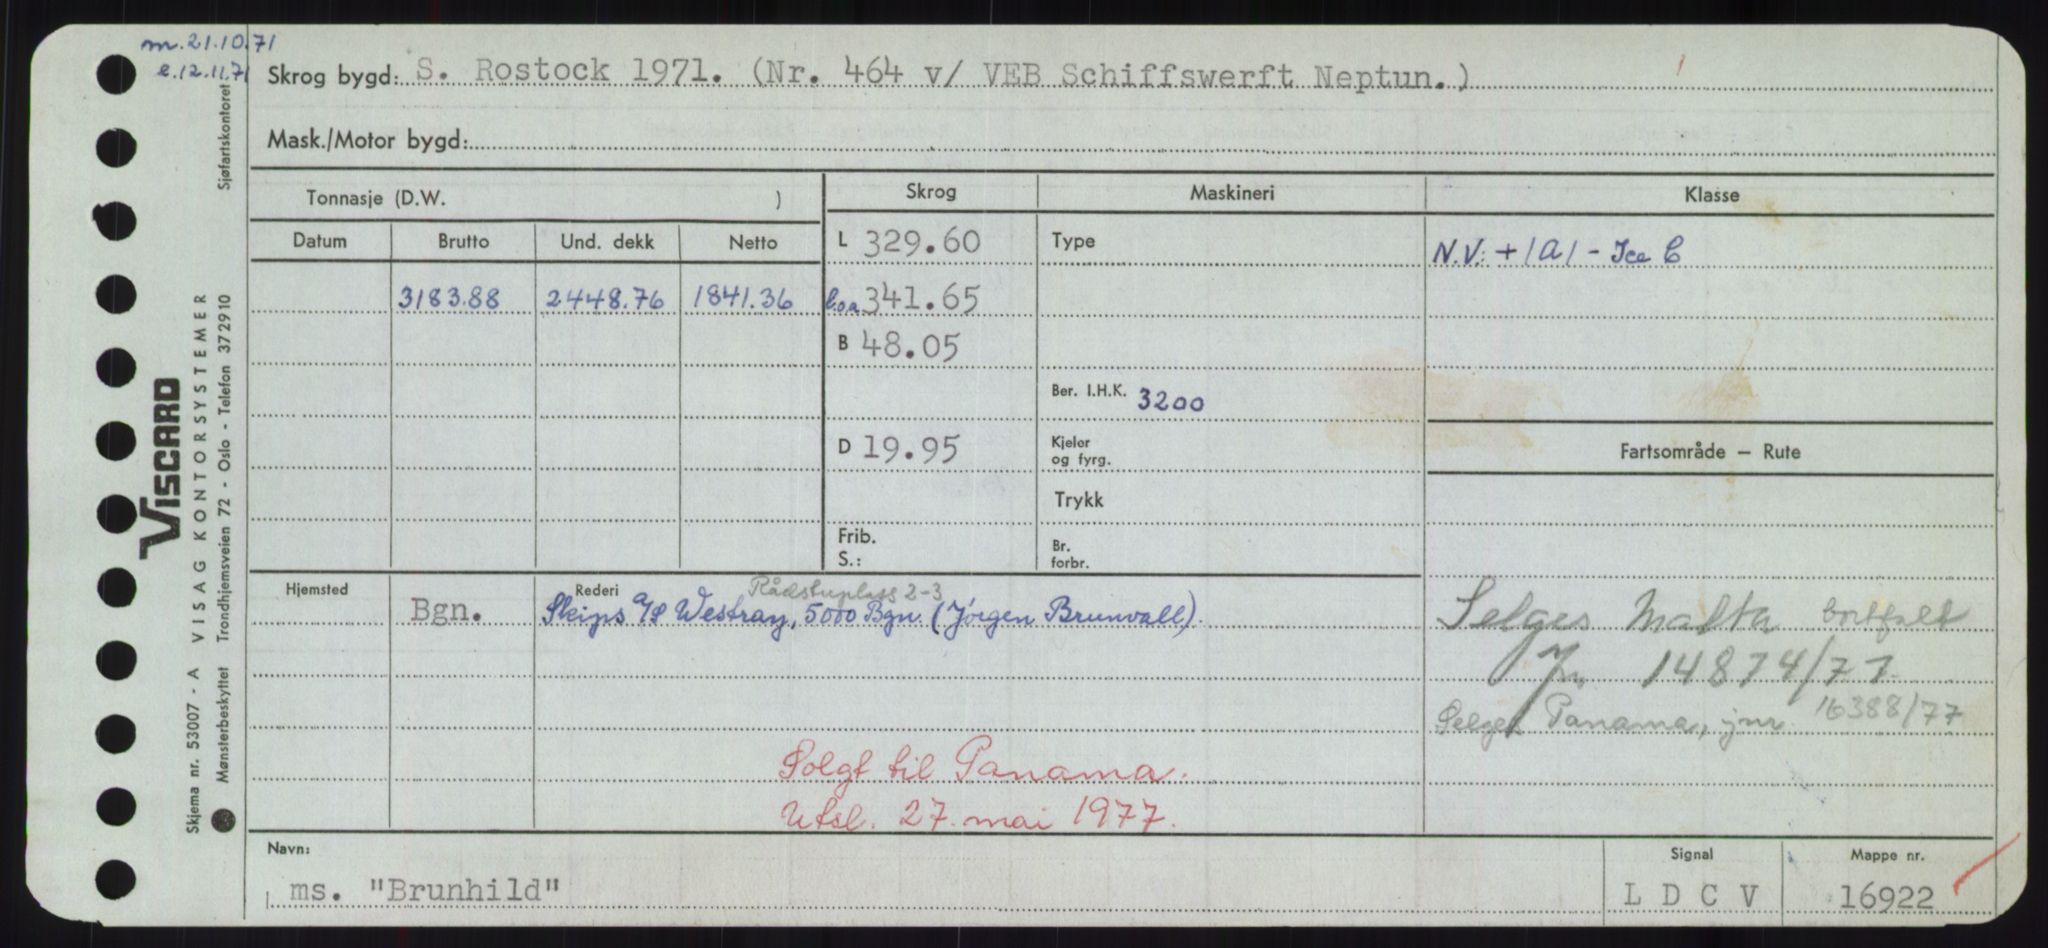 m.21.10.71
e.12.11.71
Skrog bygd: S. Rostock 1971. (Nr. 464 v/ VEB Schiffswerft Neptun.)
Mask./Motor bygd:
Tonnasje (D.W. )
Skrog
Maskineri
Klasse
Datum Brutto Und. dekk Netto
L 329.60
Type
N.V: +1A1 - Ice C
3183.88 2448.76 1841.36
l.o.a. 341.65
B 48.05
Ber. I.H.K. 3200
D 19.95
Kjeler og fyrg.
Fartsområde — Rute
Trykk
Frib. S.:
Br. forbr.
Hjemsted
Rederi
Rådstuplass 2-3
Bgn.
Skips A/S Westray, 5000 Bgn. (Jørgen Brunvall).
Selges Malta bortfalt
Jnr. 14874/77
Selges Panama, jnr. 16388/77
Solgt til Panama.
Utsl. 27. mai 1977.
Navn:
ms. "Brunhild"
Signal
L D C V
Mappe nr.
16922
Skjema nr. 53007 - A VISAG KONTORSYSTEMER
Mønsterbeskyttet Trondhjemsveien 72 - Oslo - Telefon 37 29 10 Sjøfartskontoret
VISCARD